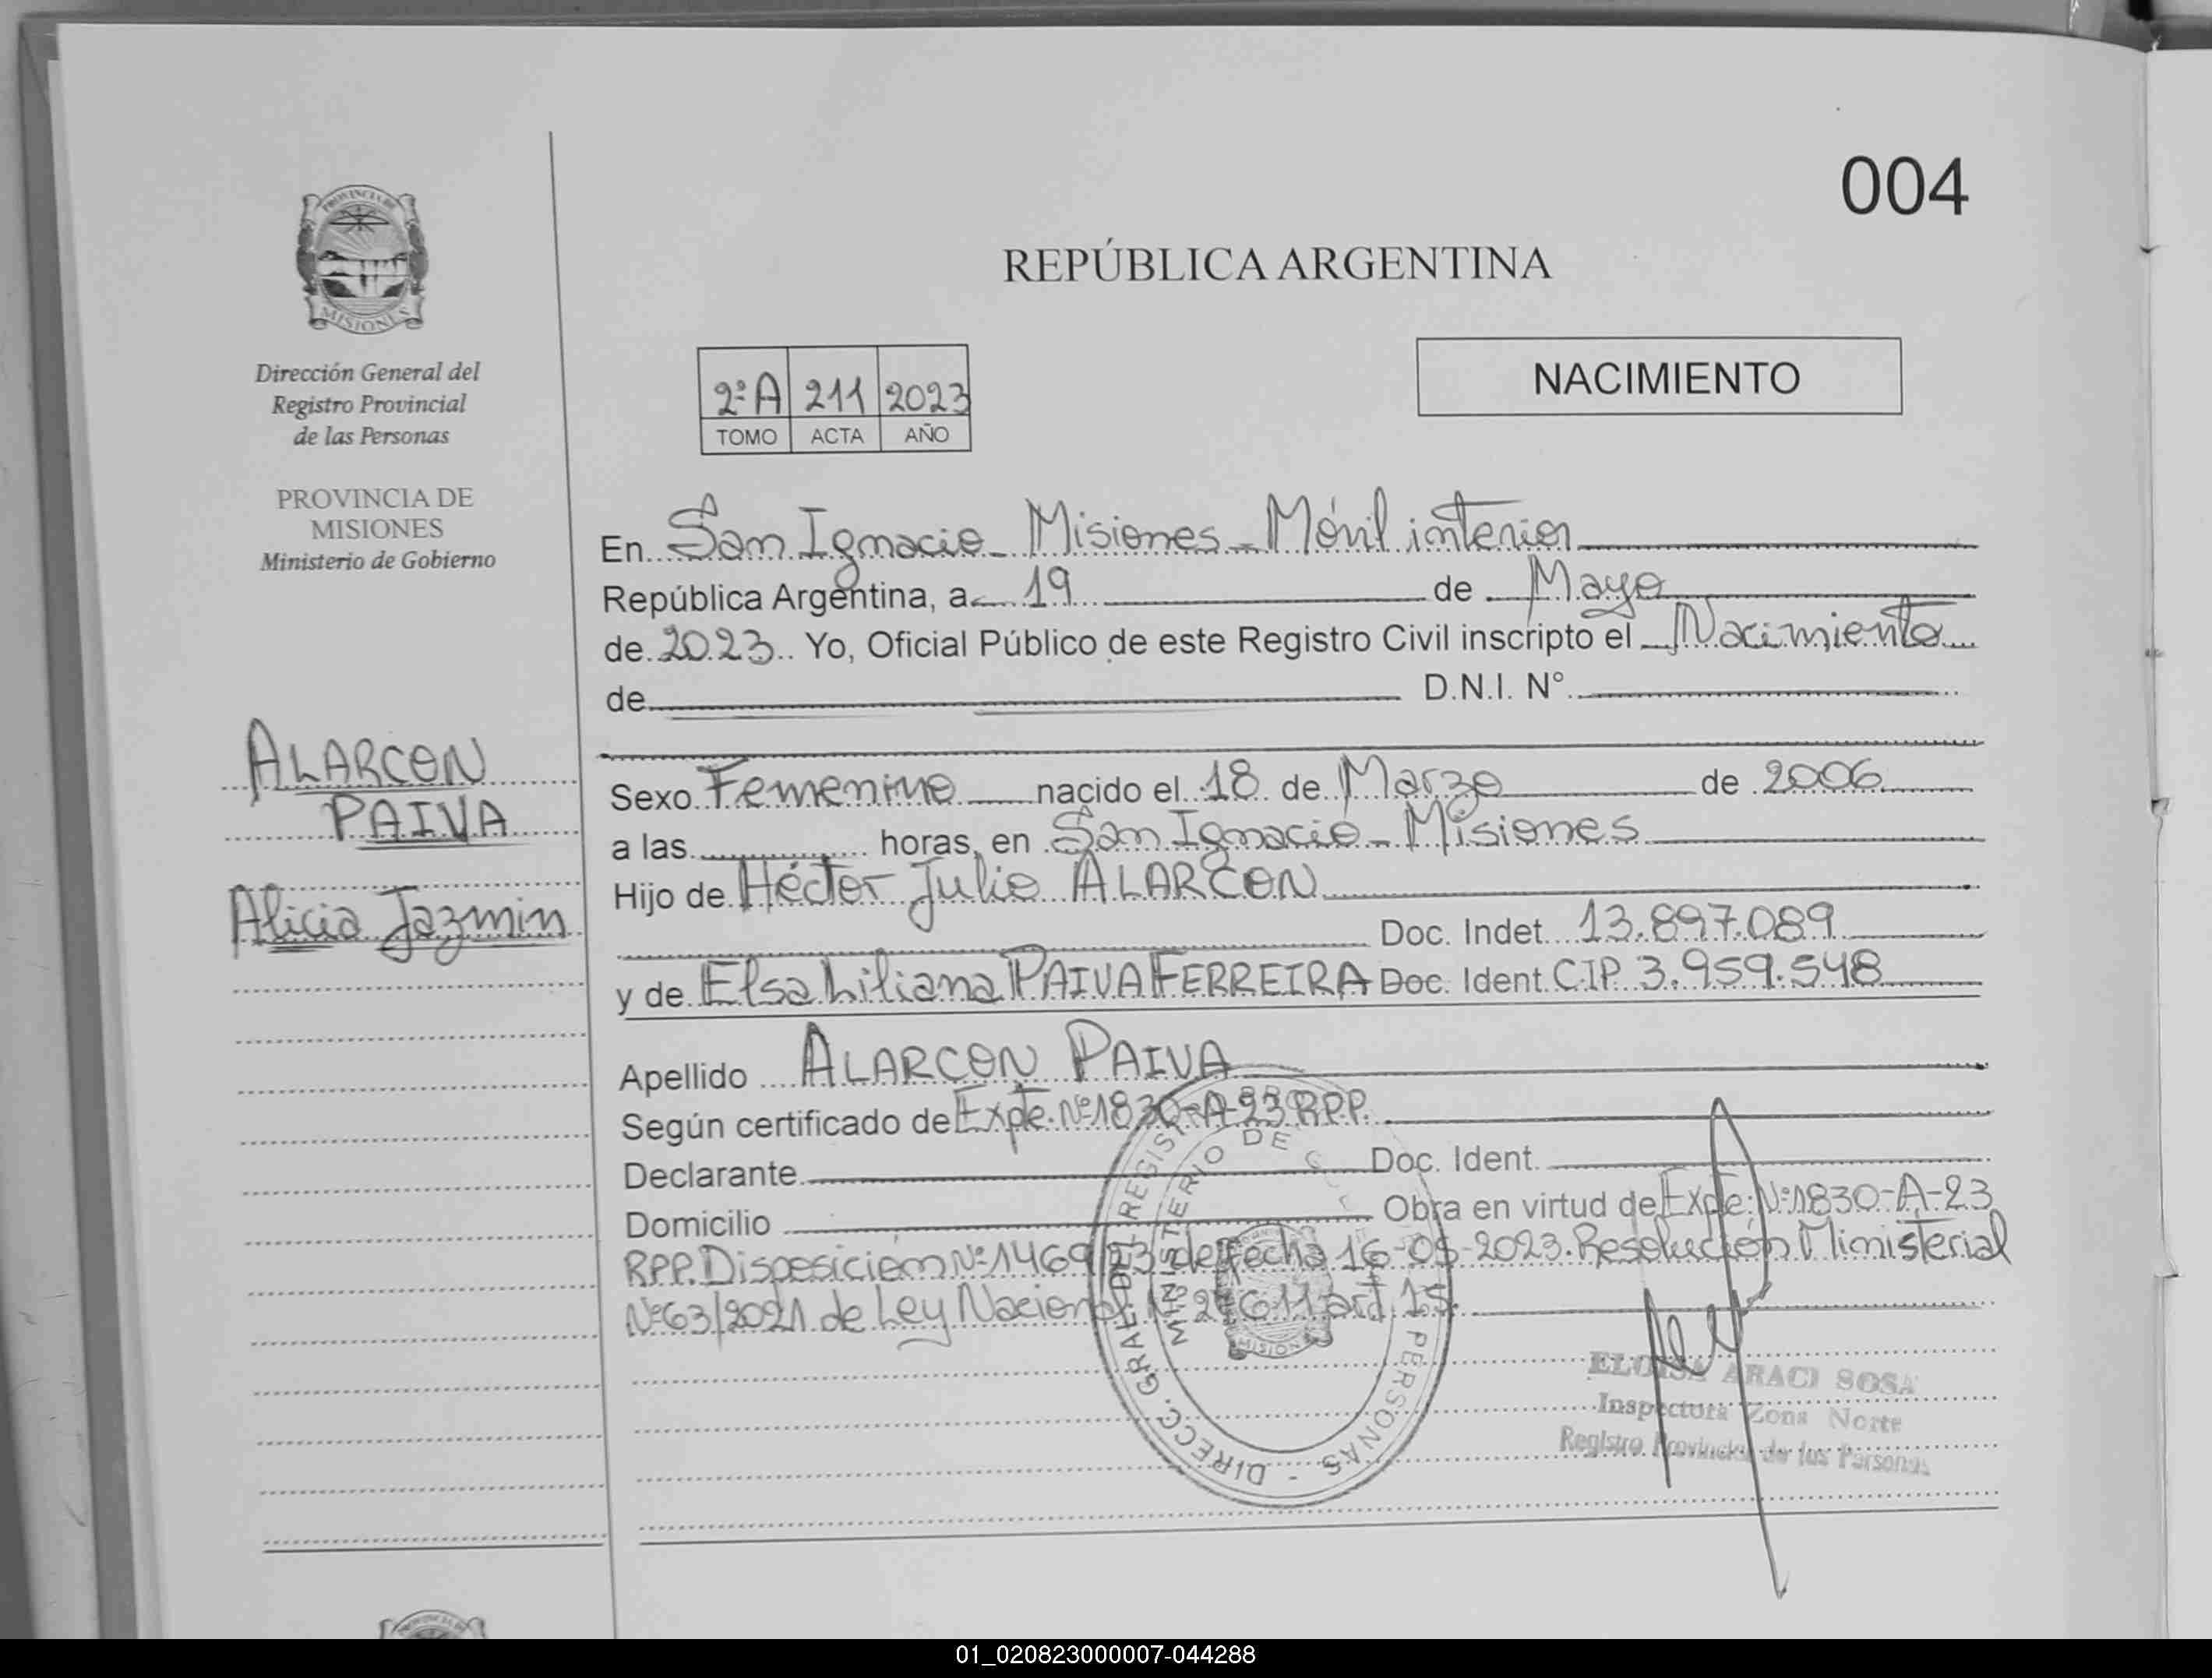 004
REPÚBLICA ARGENTINA
PROVINCIA DE
MISIONES
Dirección General del
Registro Provincial
de las Personas
PROVINCIA DE
MISIONES
Ministerio de Gobierno
2ºA 211 2023
TOMO ACTA AÑO
NACIMIENTO
ALARCON
PAIVA
Alicia Jazmin
En San Ignacio - Misiones - Móvil interior
República Argentina, a 19 de Mayo
de 2023 Yo, Oficial Público de este Registro Civil inscripto el Nacimiento
de D.N.I. N°
Sexo Femenino nacido el 18 de Marzo de 2006
a las horas, en San Ignacio - Misiones
Hijo de Héctor Julio ALARCON
Doc. Indet. 13.897.089
y de Elsa Liliana PAIVA FERREIRA Doc. Ident. C.I.P. 3.959.548
Apellido ALARCON PAIVA
Según certificado de Expte. Nº 1830-A-23 RPP.
Declarante Doc. Ident.
Domicilio Obra en virtud de Expte. Nº 1830-A-23
RPP. Disposición Nº 1469/23 de fecha 16-05-2023. Resolución Ministerial
Nº 63/2021 de Ley Nacional Nº 26611 art. 15.
DIRECC. GRAL. DEL REGIS PERSONAS -
MINISTERIO DE
MISIONES
ELOISA ARACI SOSA
Inspectora Zona Norte
Registro Provincial de las Personas
01_020823000007-044288